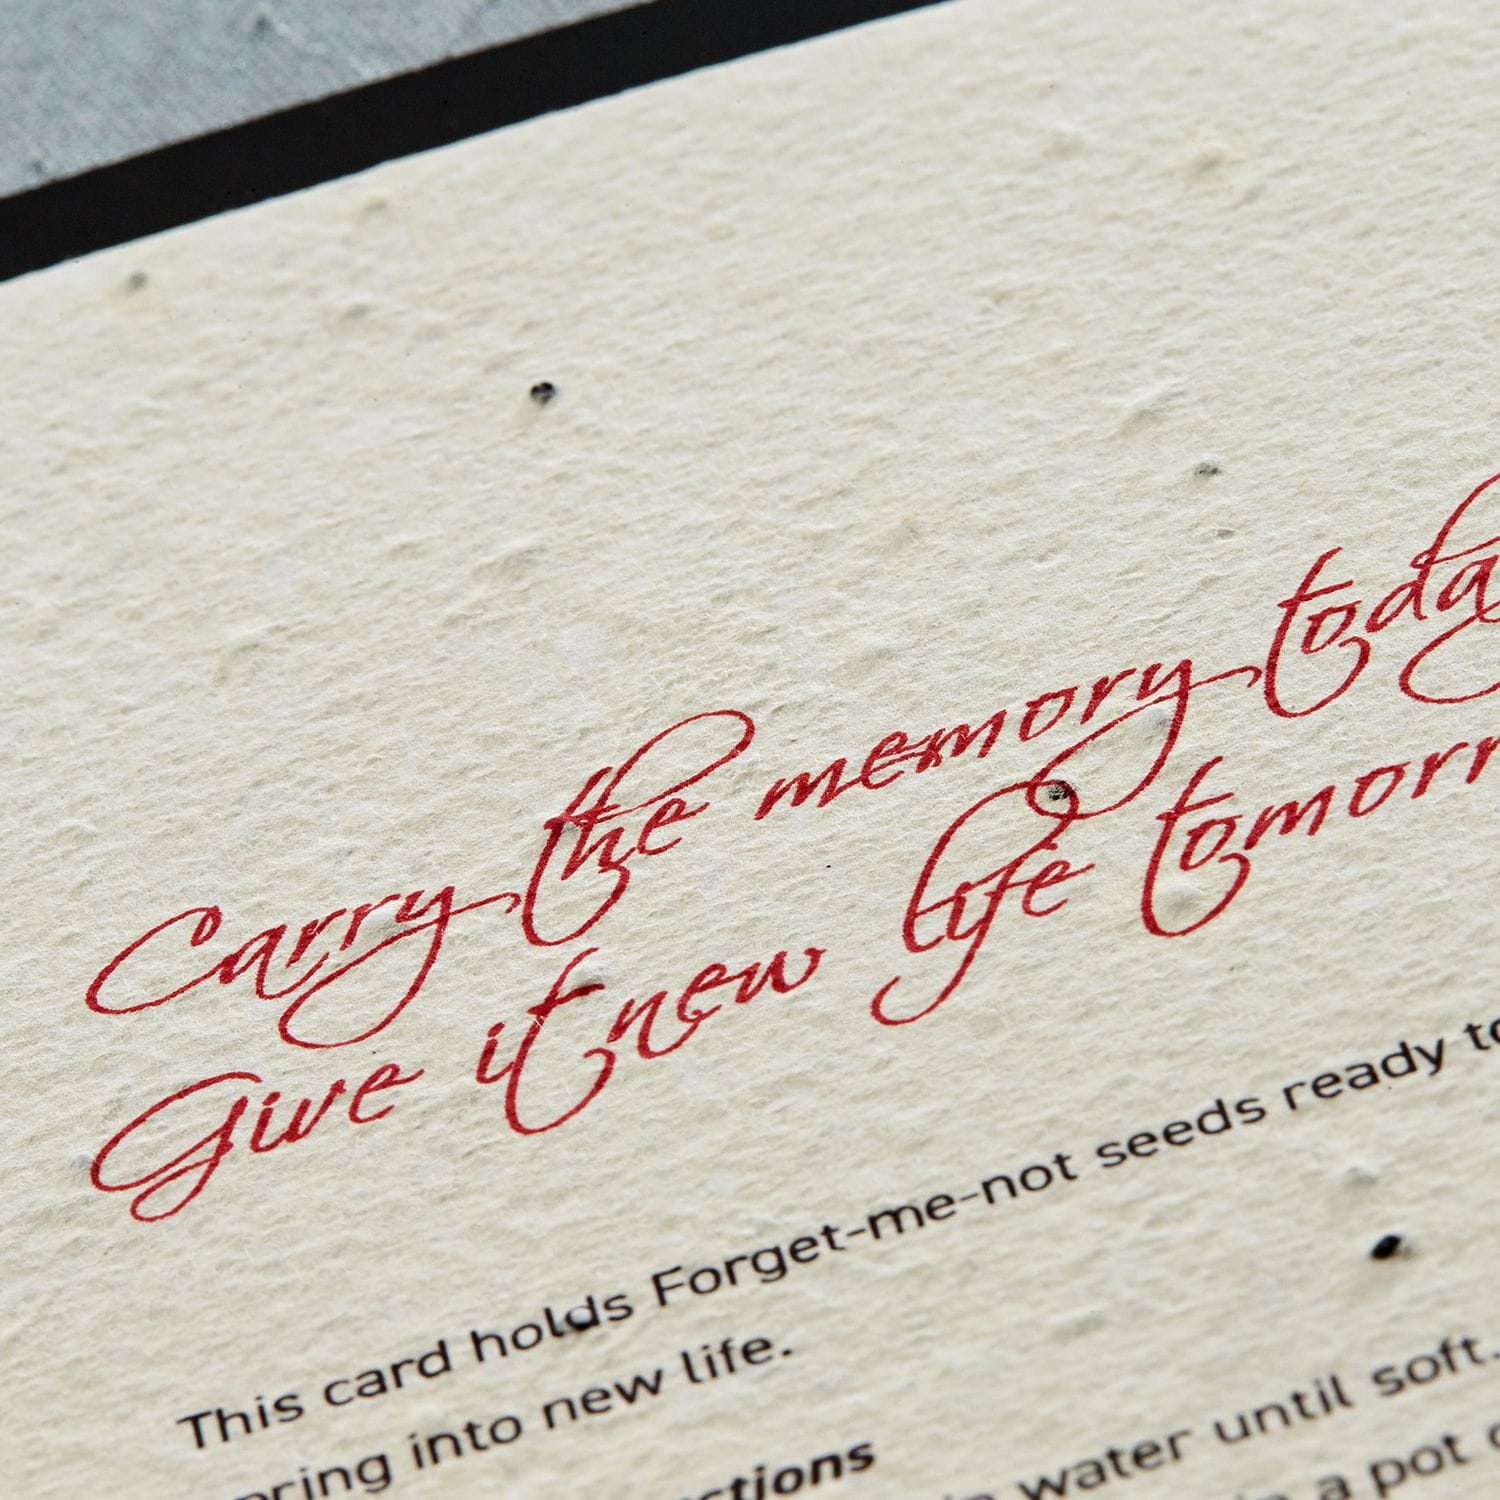 Carry the memory today
Give it new life tomorr
This card holds Forget-me-not seeds ready to
pring into new life.
ctions
in water until soft.
in a pot